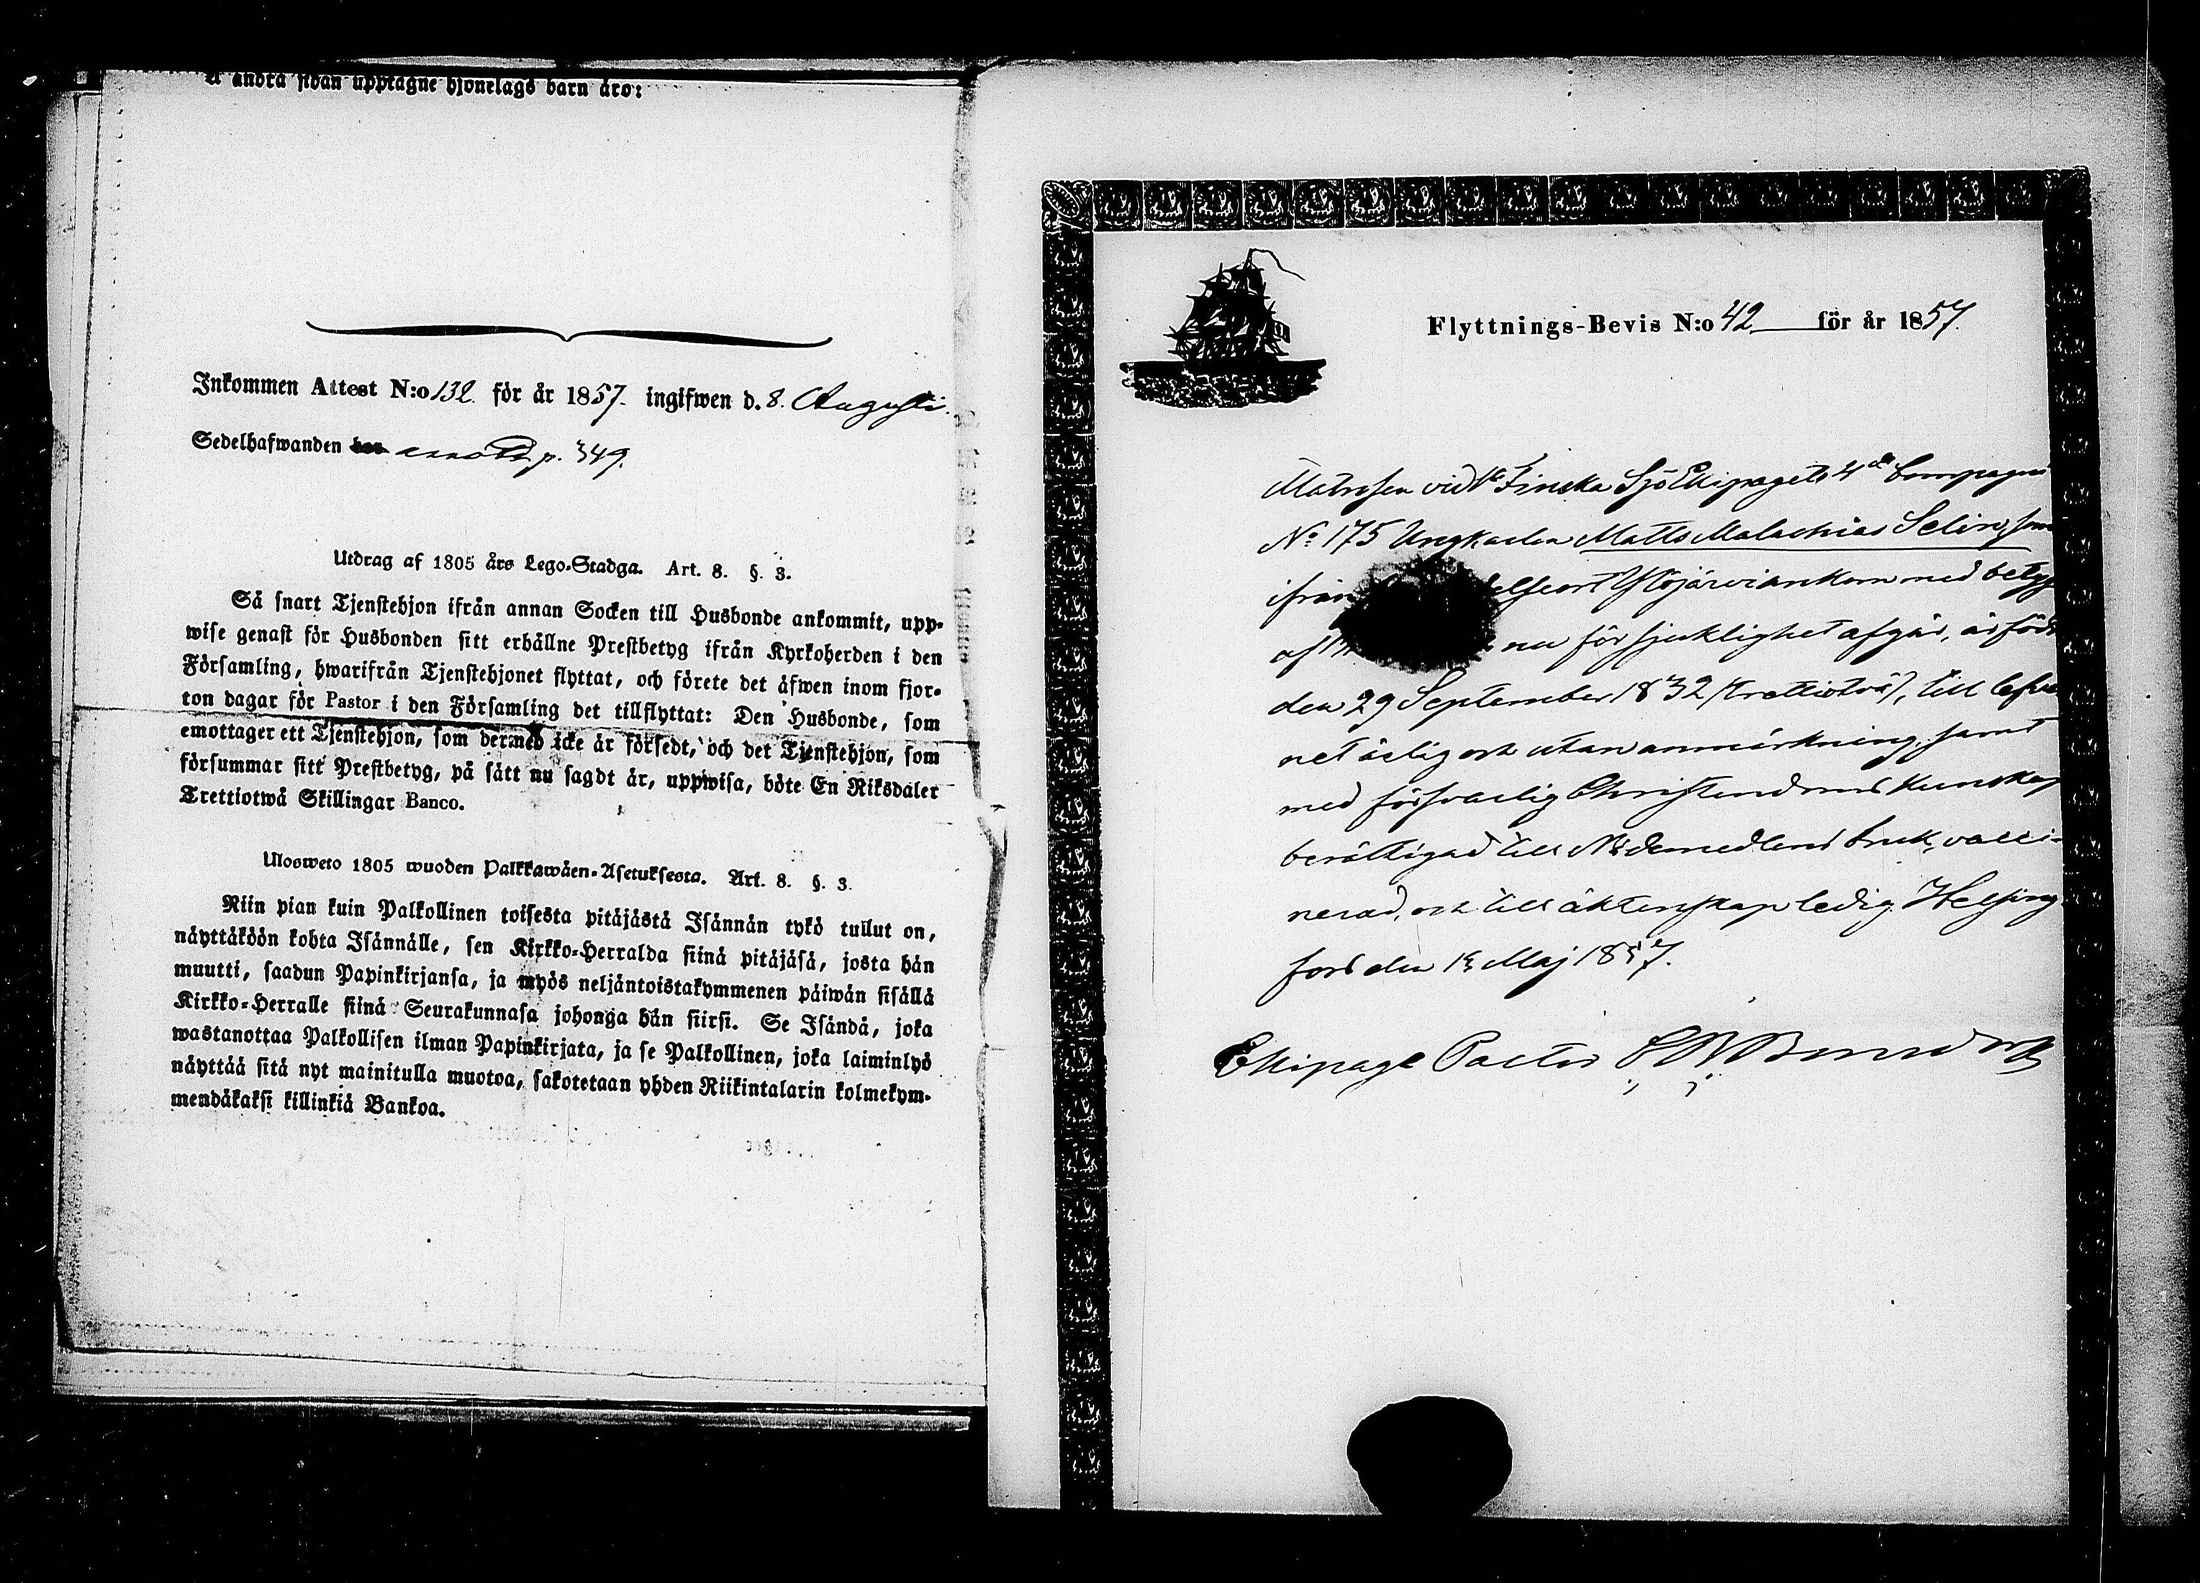 å andra sidan upptagne hjonelags barn äro:
Inkommen Attest N:o 132. för år 1857. ingifwen d. 8. Augusti.
Sedelhafwanden p. 349.
Utdrag af 1805 års Lego-Stadga. Art. 8. §. 3.
Så snart Tjenstehjon ifrån annan Socken till Husbonde ankommit, upp-
wise genast för Husbonden sitt erhållne Prestbetyg ifrån Kyrkoherden i den
Församling, hwarifrån Tjenstehjonet flyttat, och förete det äfwen inom fjor-
ton dagar för Pastor i den Församling det tillflyttat: Den Husbonde, som
emottager ett Tjenstehjon, som dermed icke är försedt, och det Tjenstehjon, som
försummar sitt Prestbetyg, på sätt nu sagdt är, uppwisa, böte En Riksdaler
Trettiotwå Skillingar Banco.
Ulosweto 1805 wuoden Palkkawäen-Asetuksesta. Art. 8. §. 3.
Niin pian kuin Palkollinen toisesta pitäjästä Isännän tykö tullut on,
näyttäköön kohta Isännälle, sen Kirkko-Herralda siinä pitäjäsä, josta hän
muutti, saadun Papinkirjansa, ja myös neljäntoistakymmenen päiwän sisällä
Kirkko-Herralle siinä Seurakunnasa johonga hän siirsi. Se Isändä, joka
wastanottaa Palkollisen ilman Papinkirjata, ja se Palkollinen, joka laiminlyö
näyttää sitä nyt mainitulla muotoa, sakotetaan yhden Riikintalarin kolmekym-
mendäkaksi killinkiä Bankoa.
Flyttnings-Bevis N:o 42 för år 1857.
Matrosen vid 1a Finska Sjö Ekipagets 4de Compagni
No 175 Ungkarlen Matts Malachias Selin, som
ifrån Ylöjärvi ankom med betyg
af nu för sjuklighet afgår, är född
den 29 September 1832 (trettiotvå), till lefver-
net ärlig och utan anmärkning, samt
med försvarlig Christendoms kunskap
berättigad till Nådemedlens bruk, vacci-
nerad, och till äktenskap ledig. Helsing
fors den Maj 1857.
Ekipage Pastor